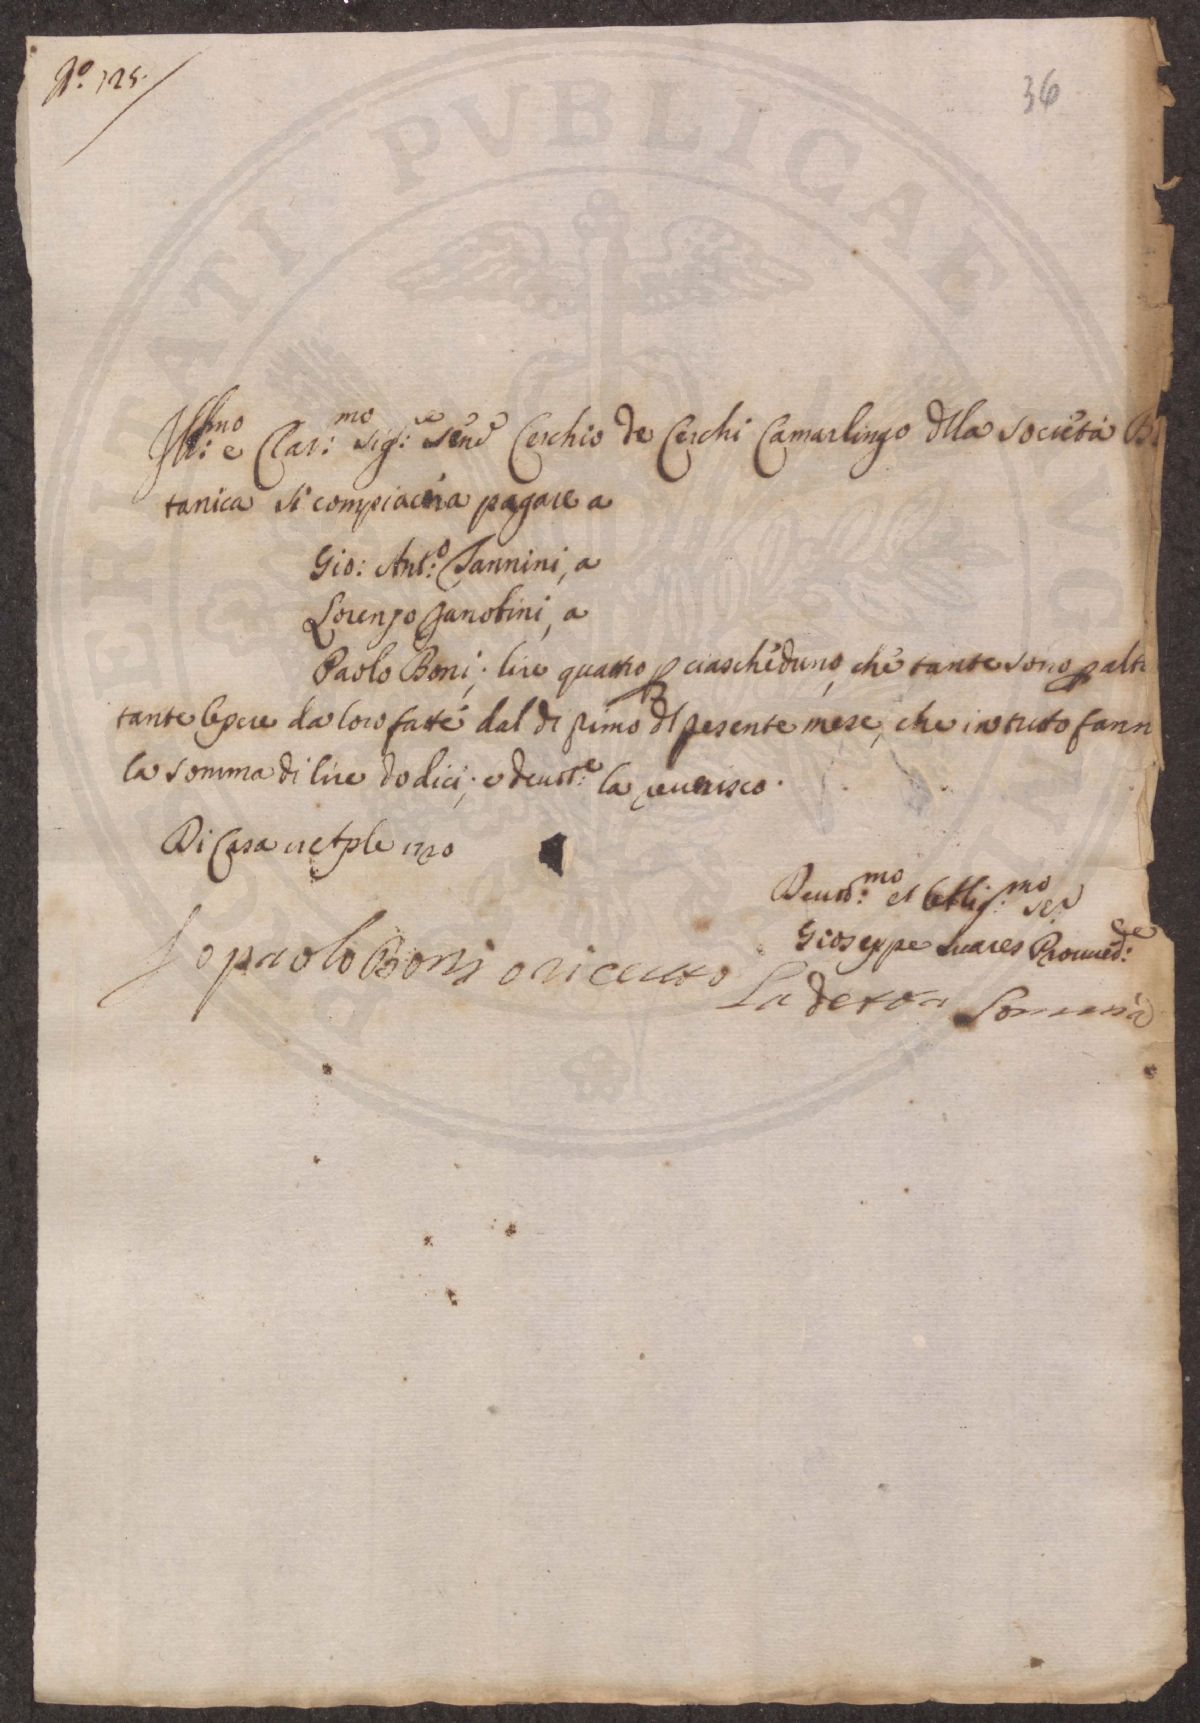 N.o 125.
36
Ill:mo e Clar:mo Sig:re Sen:e Cerchio de Cerchi Camarlingo dlla Società Bo
tanica si compiacerà pagare a
Gio: Ant:o Nannini, a
Lorenzo Zanobini, a
Paolo Boni; lire quattro p ciascheduno, che tante sono p altre
tante opere da loro fatte dal dì primo dl presente mese, che in tutto fann
la somma di lire dodici; e deuot:e la reuerisco.
Di Casa 1720
Deuot:mo et Obblig:mo Se:r
Gioseppe Suares Proued:re
Io paolo Boni o riceuto
La detta Somma